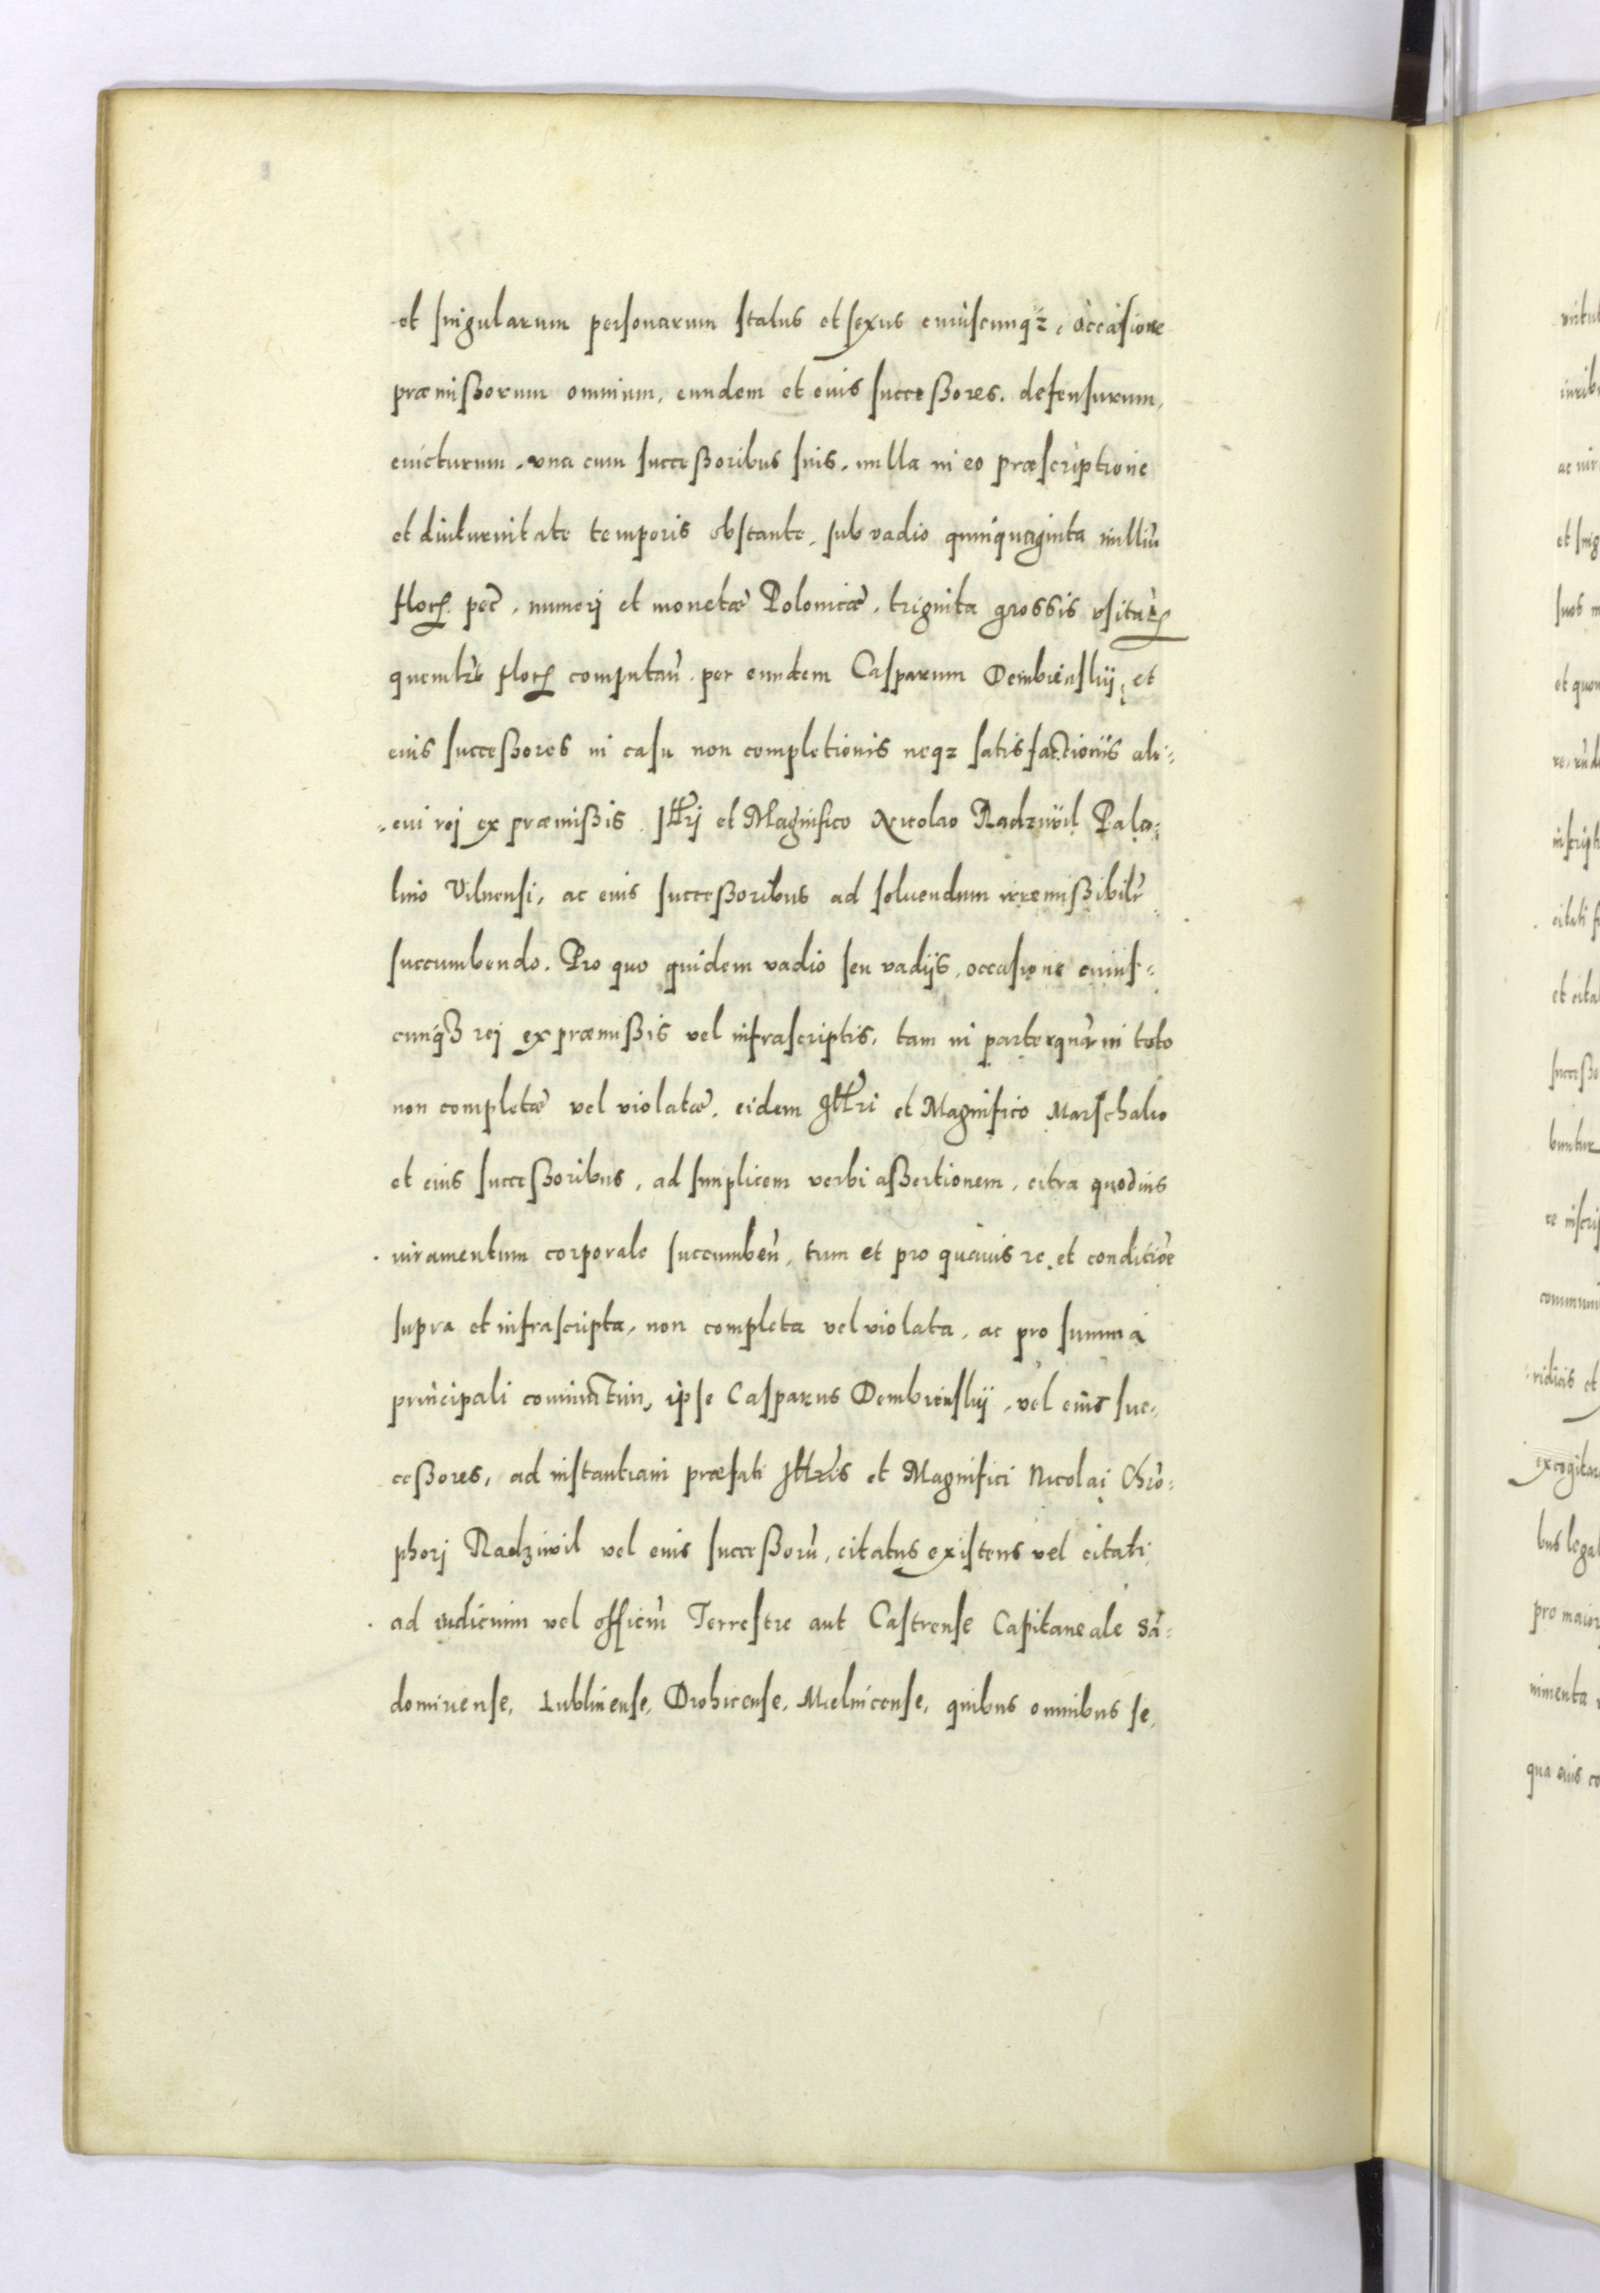 et singularum personarum status et sexus cuiuscunqz, occasione
præmißorum omnium, eundem et eius succeßores. defensurum,
euicturum, vna cum succeßoribus suis, nulla in eo præscriptione
et diuturnitate temporis obstante, sub vadio quinquaginta milliū
flor. pec̄, numeri et monetæ Polonicæ, triginta grossis vsitat.
quemlr̄e flor. computan̄. per eundem Casparum Dembienskij, et
eius succeßores in casu non completionis neqz satisfactionis ali=
=cui rej ex præmißis Illr̄j et Magnifico Nicolao Radziwil Pala=
tino Vilnensi, ac eius succeßoribus ad soluendum irremißibilr̄
succumbendo. Pro quo quidem vadio seu vadijs, occasione cuius=
cunqꝫ rej ex præmißis vel infrascriptis, tam in parte quàm in toto
non completæ vel violatæ, eidem Illr̄i et Magnifico Marschalco
et eius succeßoribus, ad simplicem verbi aßertionem, citra quoduis
iuramentum corporale succumben̄, tum et pro quauis re et conditiōe
supra et infrascripta, non completa vel violata, ac pro summa
principali coniunctim, ipse Casparus Dembienskij, vel eius suc=
ceßores, ad instantiam præfati Illr̄is et Magnifici Nicolai Chr̄o=
phorj Radziwil vel eius succeßorū, citatus existens vel citati,
ad iudicium vel officiū Terrestre aut Castrense Capitaneale Sā=
domirense, Lublinense, Drohicense, Mielnicense, quibus omnibus se,